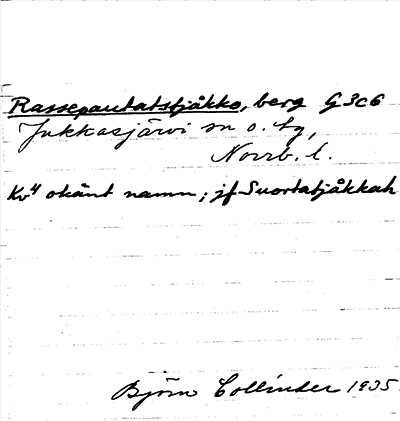 Rassepautatstjåkko, berg G3c6
Jukkasjärvi sn o. tg,
Norrb. l.
Kv4 okänt namn; jf Suortatjåkkah
Björn Collinder 1935